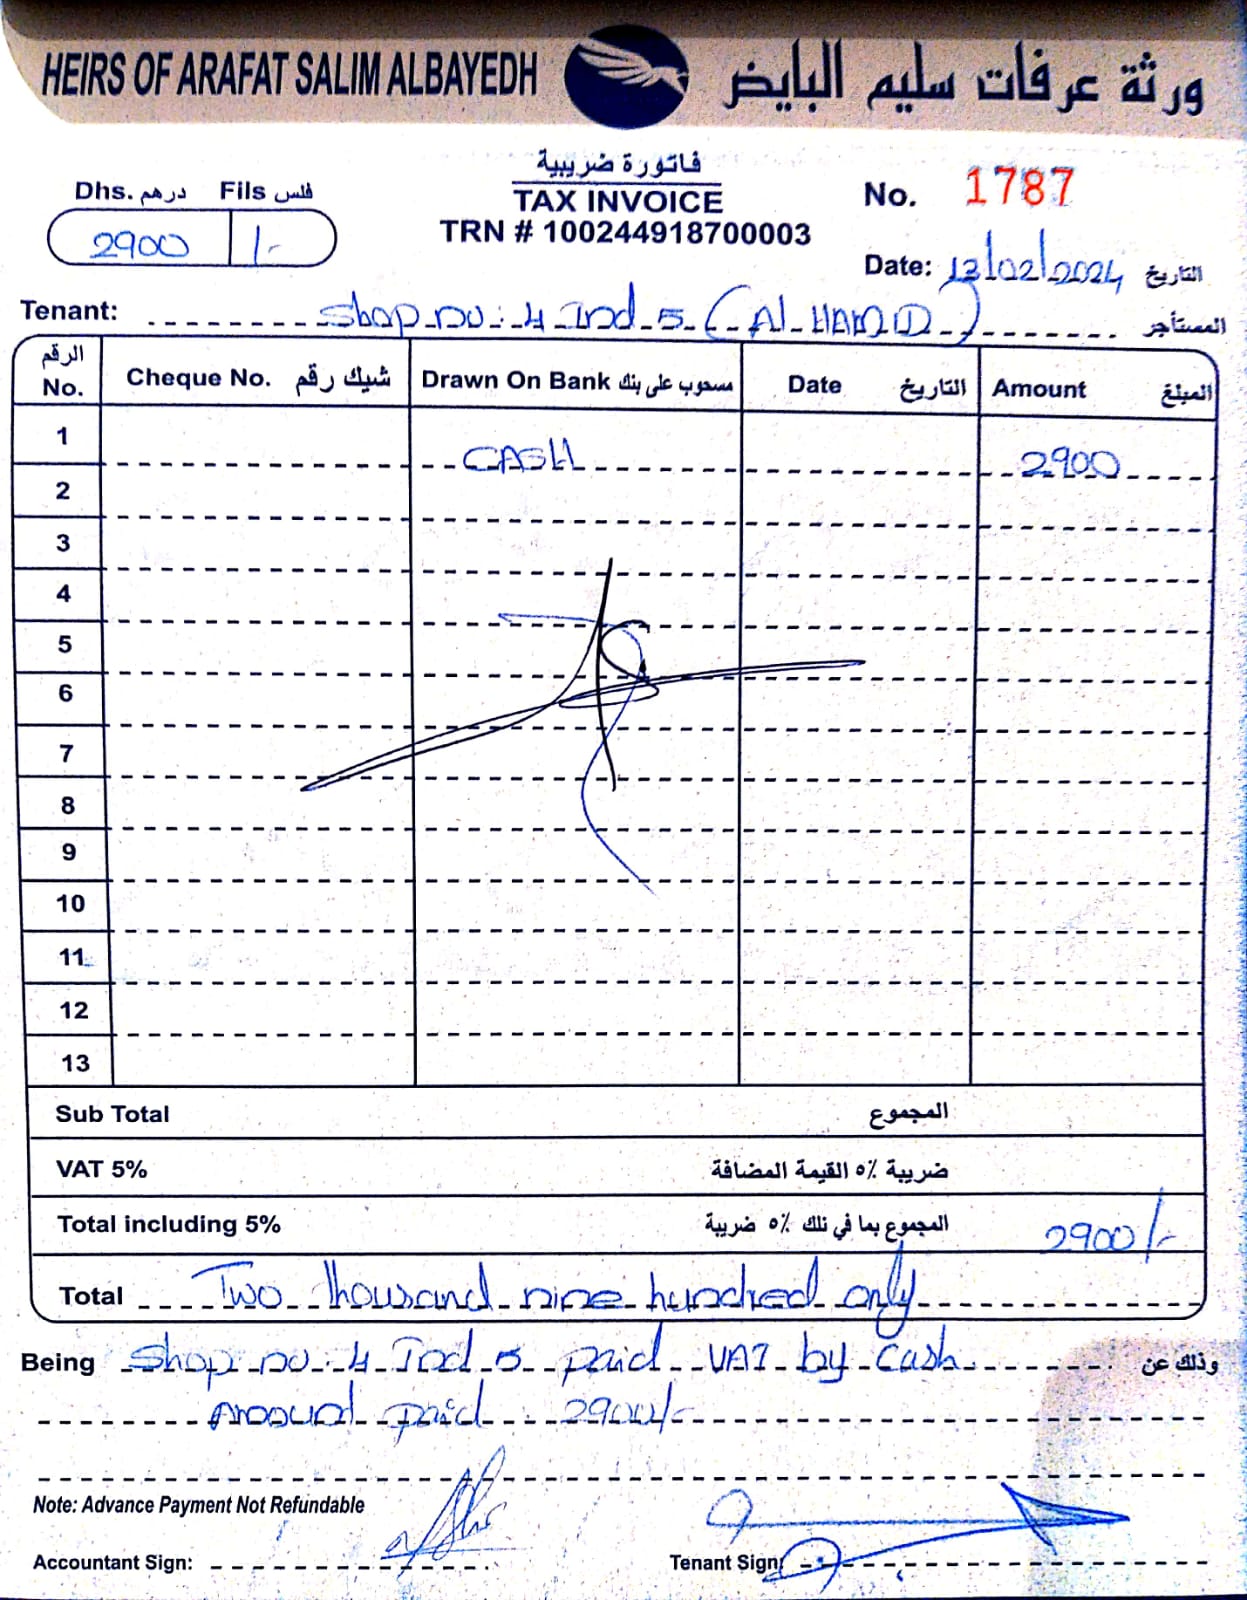 HEIRS OF ARAFAT SALIM ALBAYEDH ورثة عرفات سليم البايض
فاتورة ضريبية
TAX INVOICE
TRN # 100244918700003
Dhs. درهم Fils فلس
2900 /-
No. 1787
Date: 13/02/2024 التاريخ
Tenant: Shop no: 4 Ind 5 (AL HAMD) المستأجر
الرقم No. Cheque No. شيك رقم Drawn On Bank مسحوب على بنك Date التاريخ Amount المبلغ
1 CASH 2900
2
3
4
5
6
7
8
9
10
11
12
13
Sub Total المجموع
VAT 5% ضريبة ٥٪ القيمة المضافة
Total including 5% المجموع بما في ذلك ٥٪ ضريبة 2900/-
Total Two thousand nine hundred only
Being Shop no: 4 Ind 5 paid VAT by Cash وذلك عن
Amount paid : 2900/-
Note: Advance Payment Not Refundable
Accountant Sign:
Tenant Sign: